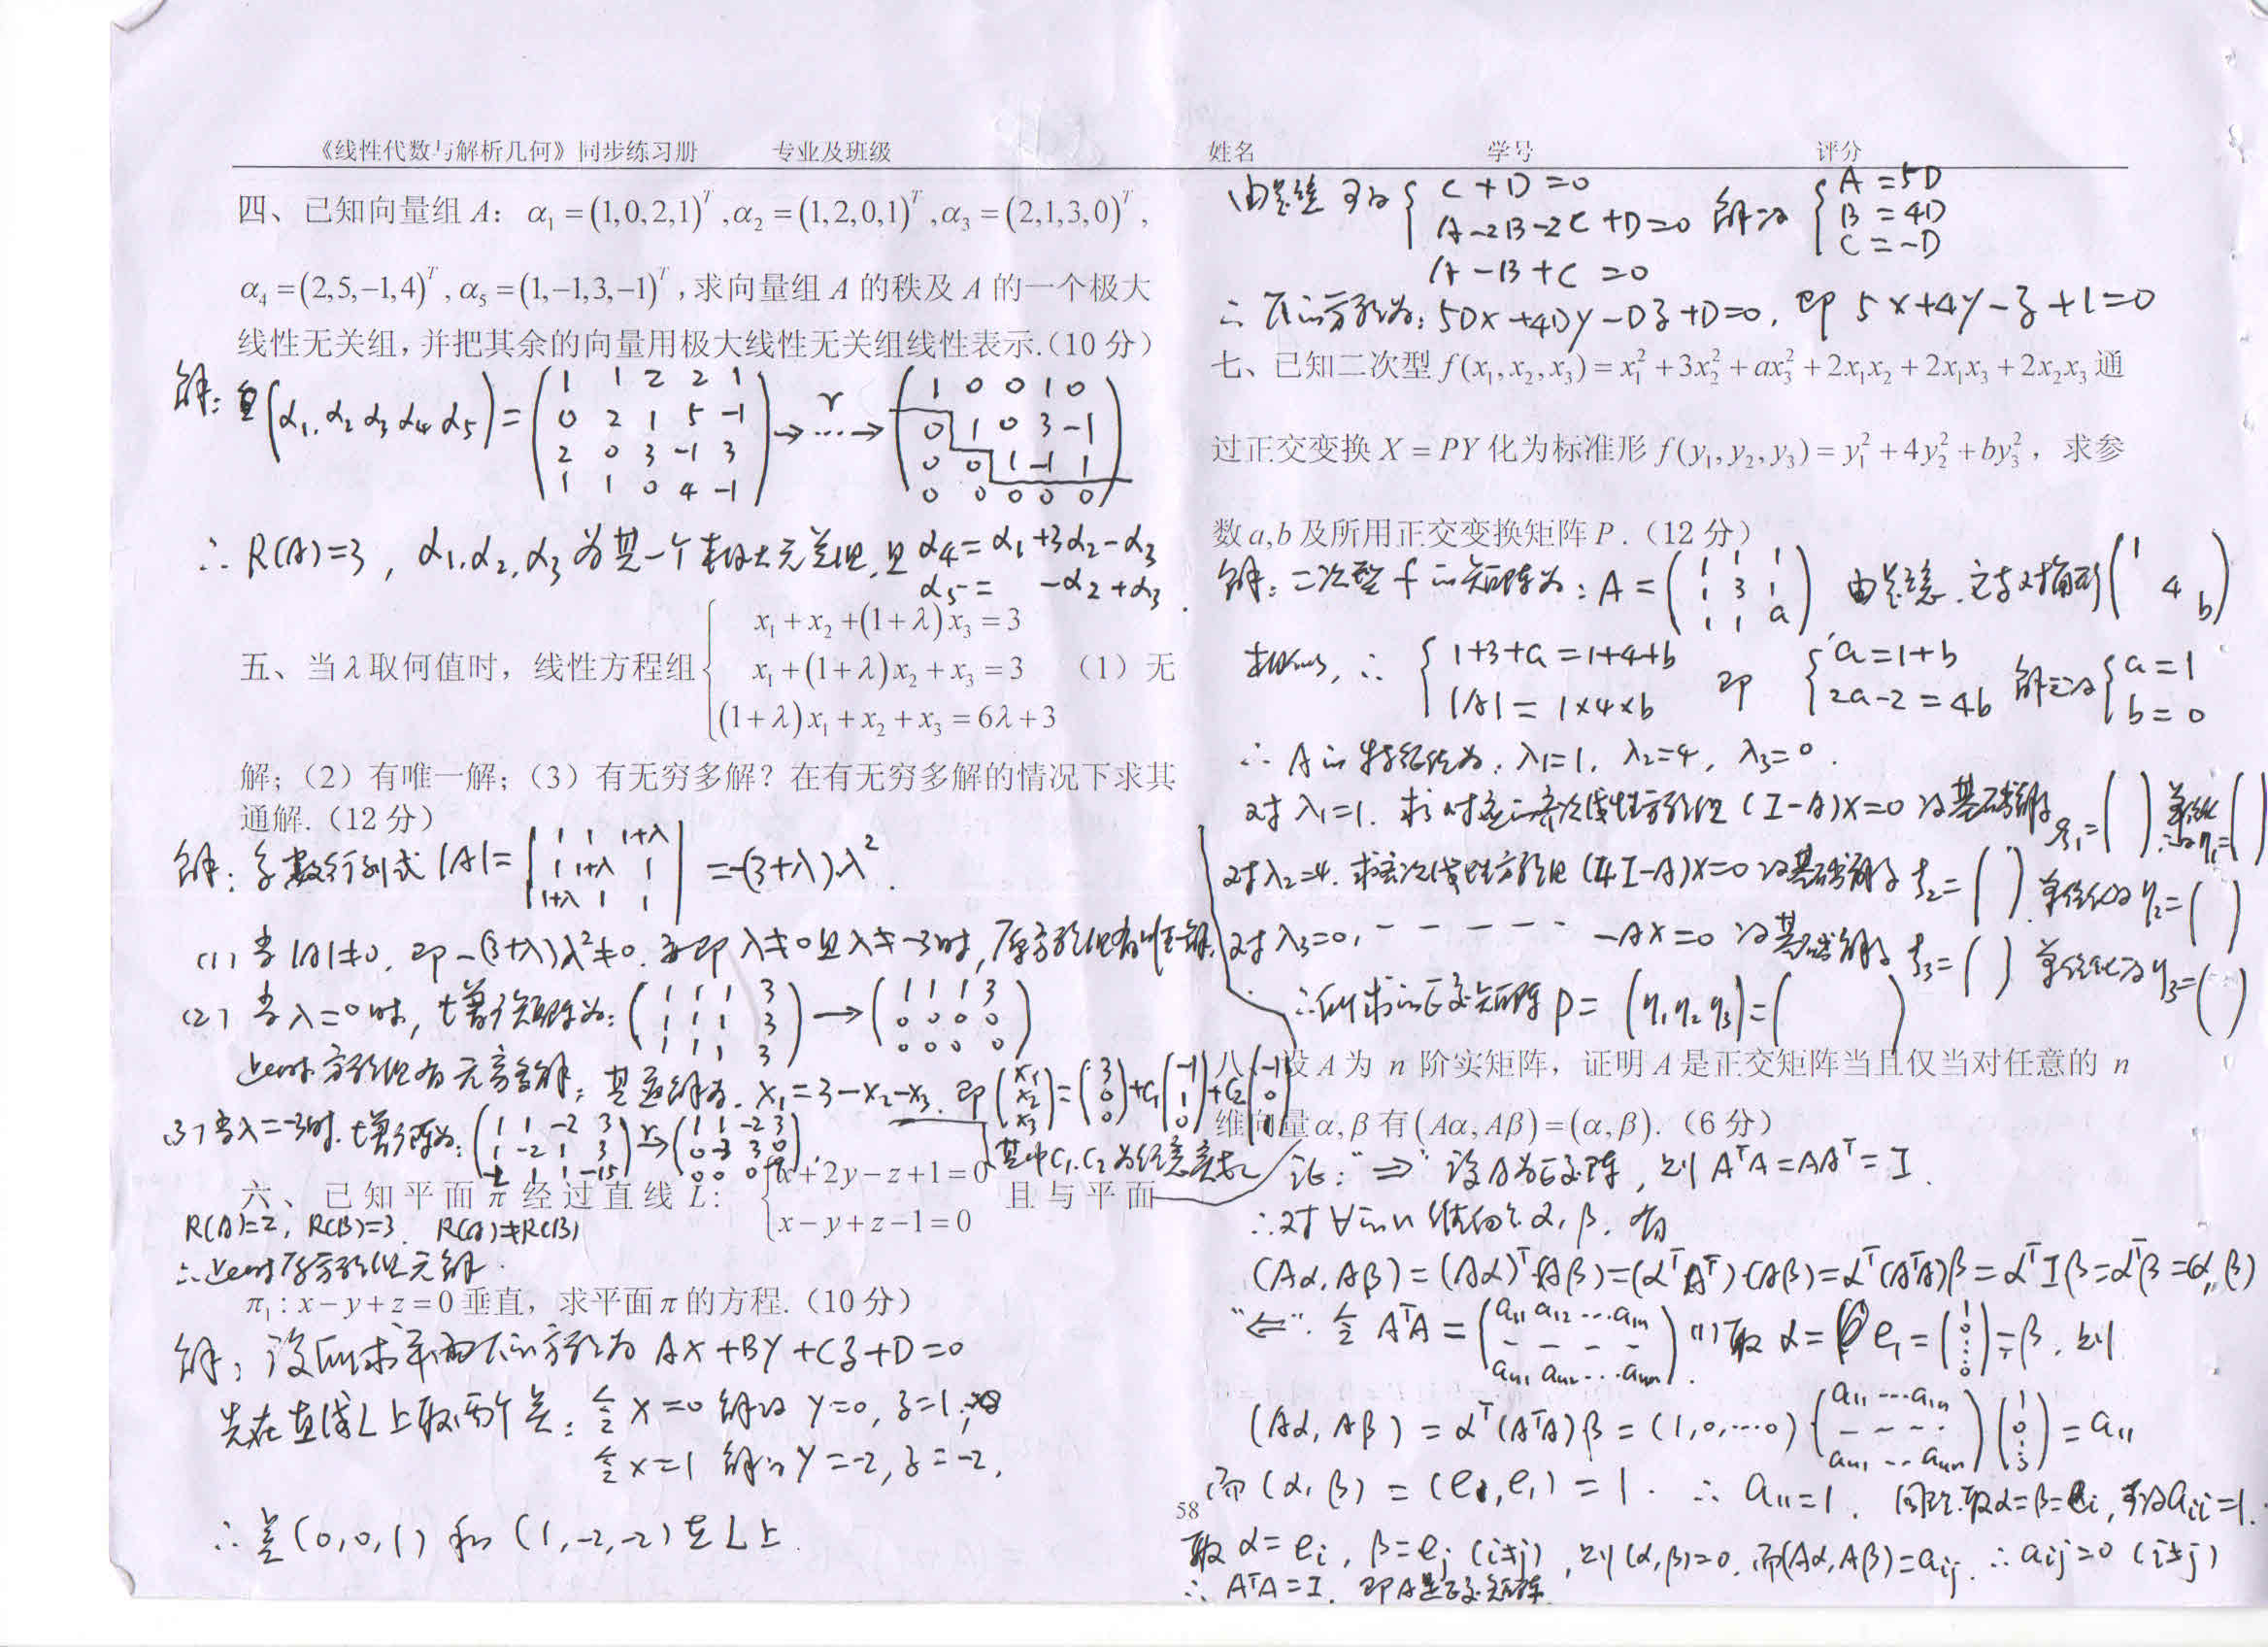 《线性代数与解析几何》同步练习册 专业及班级 姓名 学号 评分
四、已知向量组 A：α₁=(1,0,2,1)ᵀ,α₂=(1,2,0,1)ᵀ,α₃=(2,1,3,0)ᵀ,
α₄=(2,5,−1,4)ᵀ,α₅=(1,−1,3,−1)ᵀ,求向量组 A 的秩及 A 的一个极大
线性无关组,并把其余的向量用极大线性无关组线性表示.(10 分)
解: (α₁,α₂ α₃ α₄ α₅)=
( 1 1 2 2 1
0 2 1 5 −1
2 0 3 −1 3
1 1 0 4 −1 )
→ ⋯ →
( 1 0 0 1 0
0 1 0 3 −1
0 0 1 −1 1
0 0 0 0 0 )
∴ R(A)=3, α₁,α₂,α₃ 为其一个极大无关组,且 α₄=α₁+3α₂−α₃
α₅= −α₂+α₃.
五、当λ取何值时，线性方程组
x₁+x₂+(1+λ)x₃=3
x₁+(1+λ)x₂+x₃=3 （1）无
(1+λ)x₁+x₂+x₃=6λ+3
解;（2）有唯一解;（3）有无穷多解？在有无穷多解的情况下求其
通解.（12 分）
解: 系数行列式 |A|=
| 1 1 1+λ
1 1+λ 1
1+λ 1 1 |
=−(3+λ)λ².
(1) 当 |A|≠0, 即 −(3+λ)λ²≠0, 亦即 λ≠0且λ≠−3时,原方程组有唯一解.
(2) 当 λ=0时, 增广矩阵为:
( 1 1 1 3
1 1 1 3
1 1 1 3 )
→
( 1 1 1 3
0 0 0 0
0 0 0 0 )
此时方程组有无穷多解, 其通解为. x₁=3−x₂−x₃. 即 (x₁ x₂ x₃)=(3 0 0)+C₁(−1 1 0)+C₂(−1 0 1)
其中C₁,C₂为任意实数
(3) 当λ=−3时. 增广阵为:
( 1 1 −2 3
1 −2 1 3
−2 1 1 −15 )
→
( 1 1 −2 3
0 −3 3 0
0 0 0 )
R(A)=2, R(B)=3. R(A)≠R(B)
∴此时原方程组无解.
六、已知平面 π 经过直线 L：
x+2y−z+1=0
x−y+z−1=0
且与平面
π₁:x−y+z=0垂直，求平面π的方程.（10 分）
解: 设所求平面π的方程为 Ax+By+Cz+D=0
先在直线L上取两个点: 令 x=0 解得 y=0, z=1,
令 x=1 解得 y=−2, z=−2.
∴ 点(0,0,1) 和 (1,−2,−2)在L上.
由题意可得
C+D=0
A−2B−2C+D=0
A−B+C=0
解得
A=5D
B=4D
C=−D
∴ π的方程为: 5Dx+4Dy−Dz+D=0, 即 5x+4y−z+1=0
七、已知二次型 f(x₁,x₂,x₃)=x₁²+3x₂²+ax₃²+2x₁x₂+2x₁x₃+2x₂x₃ 通
过正交变换 X=PY 化为标准形 f(y₁,y₂,y₃)=y₁²+4y₂²+by₃²，求参
数 a,b 及所用正交变换矩阵 P.（12 分）
解: 二次型 f 的矩阵为: A=
( 1 1 1
1 3 1
1 1 a )
由题意,它与对角形
( 1
4
b )
相似, ∴
1+3+a=1+4+b
|A|=1×4×b
即
a=1+b
2a−2=4b
解之得
a=1
b=0
∴ A的特征值为: λ₁=1, λ₂=4, λ₃=0.
对 λ₁=1. 求对应齐次线性方程组 (I−A)X=0 得基础解系 ξ₁=( ), 单位化得η₁=( )
对λ₂=4. 求齐次线性方程组 (4I−A)X=0得基础解系 ξ₂=( ) 单位化得 η₂=( )
对 λ₃=0, − − − − − −AX=0 得基础解系 ξ₃=( ) 单位化得 η₃=( )
∴所求的正交矩阵 P=(η₁ η₂ η₃)=( )
八、设 A 为 n 阶实矩阵，证明 A 是正交矩阵当且仅当对任意的 n
维向量α,β有(Aα,Aβ)=(α,β).（6 分）
证: "⇒" 设A为正交阵, 则 AᵀA=AAᵀ=I.
∴对∀的n维向量α,β, 有
(Aα,Aβ)=(Aα)ᵀ(Aβ)=(αᵀAᵀ)·(Aβ)=αᵀ(AᵀA)β=αᵀIβ=αᵀβ=(α,β)
"⇐". 令 AᵀA=
( a₁₁ a₁₂ ⋯ a₁ₙ
− − − −
aₙ₁ aₙ₂ ⋯ aₙₙ ).
(1)取 α=e₁=(1 0 ⋮ 0)=β, 则
(Aα,Aβ)=αᵀ(AᵀA)β=(1,0,⋯0)
( a₁₁ ⋯ a₁ₙ
− − − −
aₙ₁ ⋯ aₙₙ )
(1 0 ⋮ 0)=a₁₁
而(α,β)=(e₁,e₁)=1. ∴ a₁₁=1. 同理.取α=β=eᵢ,可得aᵢᵢ=1.
取 α=eᵢ, β=eⱼ (i≠j), 则(α,β)=0. 而(Aα,Aβ)=aᵢⱼ. ∴aᵢⱼ=0 (i≠j)
∴ AᵀA=I. 即A是正交矩阵.
58